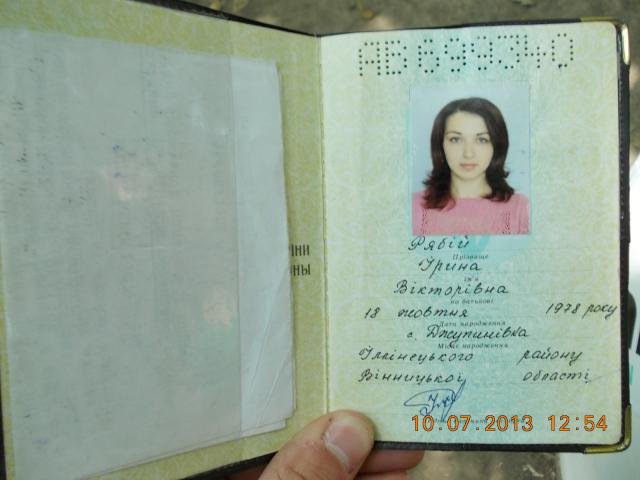 АВ 899340
їни
ны
Рябій
Прізвище
Ірина
ім'я
Вікторівна
по батькові
18 жовтня 1978 року
Дата народження
с. Джупинівка
Місце народження
Іллінецького району
Вінницької області
10.07.2013 12:54